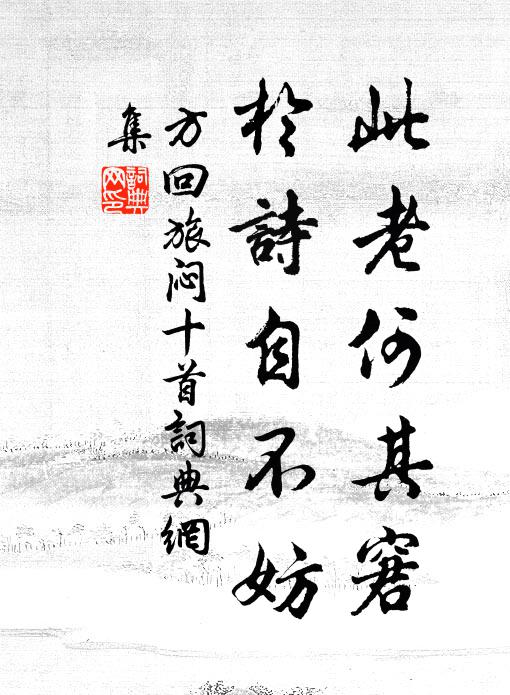 此老何其窘
於詩自不妨
方回旅闷十首詞典網
集
詞典网印